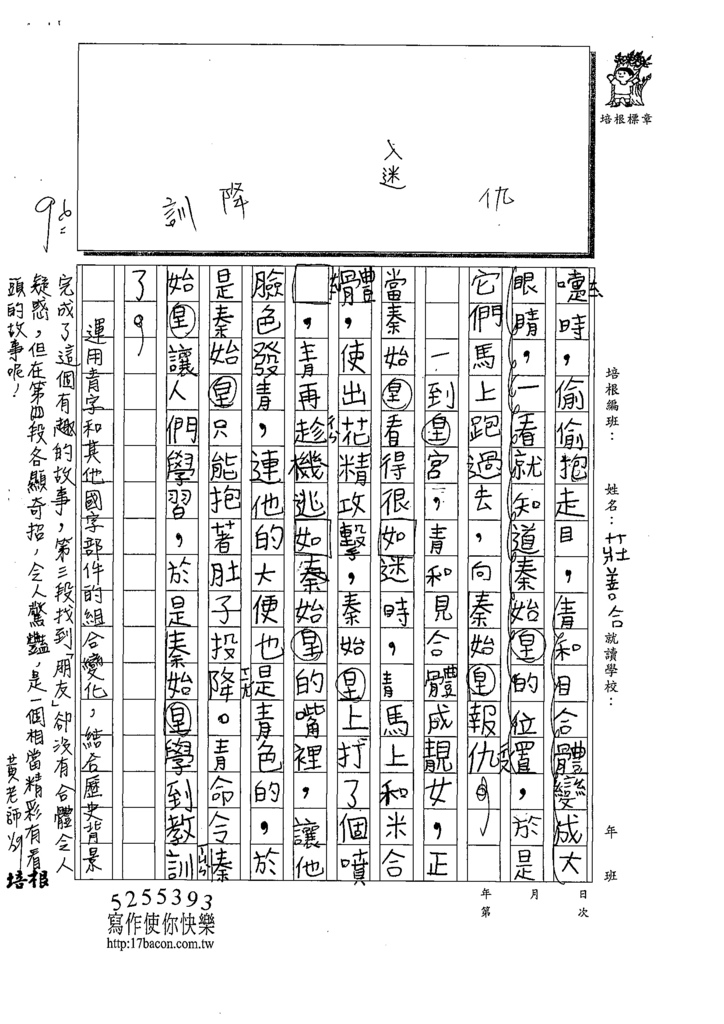 培根標章
仇
入迷
降
訓
96
培根編班：
姓名：莊善合
就讀學校：
年
班
嚏時，偷偷抱走目，青和目合體變成大
眼睛，一看就知道秦始皇的位置，於是
它們馬上跑過去，向秦始皇報仇。
一到皇宮，青和見合體成靚女，正
當秦始皇看得很入迷時，青馬上和米合
體，使出花精攻擊，秦始皇上打了個噴
嚏，青再趁機逃如秦始皇的嘴裡，讓他
臉色發青，連他的大便也是青色的，於
是秦始皇只能抱著肚子投降。青命令秦
始皇讓人們學習，於是秦始皇學到教訓
了。
運用青字和其他國字部件的組合變化，結合歷史背景
完成了這個有趣的故事，第三段找到「朋友」卻沒有合體令人
疑惑，但在第四段各顯奇招，令人驚豔，是一個相當精彩有看
頭的故事呢！
黃老師
培根
年
月
日
第
次
5255393
寫作使你快樂
http:17bacon.com.tw